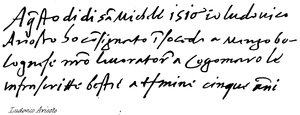 Agosto di di san Michele 1510 io Ludovico
Ariosto ho consignato i socida a Mengo bo-
lognese mio lavorator a Cogomaro le
infrascritte bestie a termine cinque anni
Ludovico Ariosto